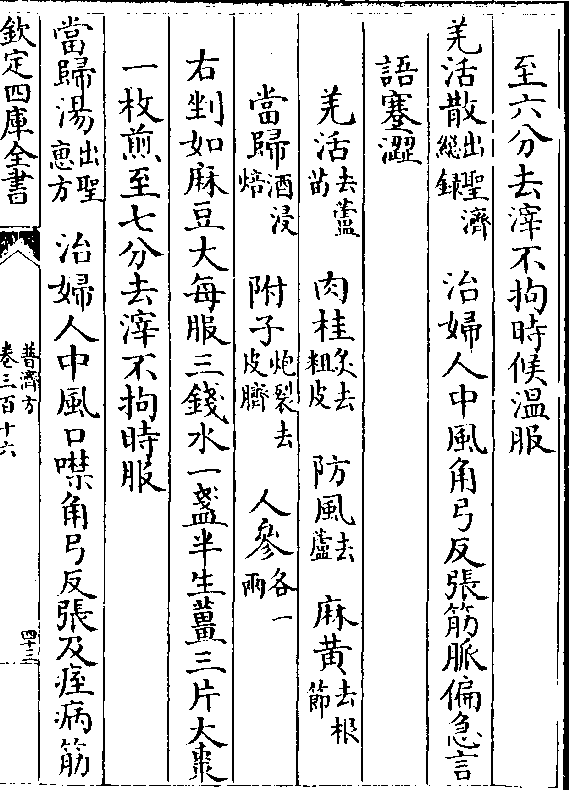 至六分去滓不拘時候溫服
羌活散出聖濟總錄 治婦人中風角弓反張筋脈偏急言
語蹇澀
羌活去蘆苗 肉桂炙去粗皮 防風去蘆 麻黄去根節
當歸酒浸焙 附子炮裂去皮臍 人參各一兩
右剉如麻豆大每服三錢水一盞半生薑三片大棗
一枚煎至七分去滓不拘時服
當歸湯出聖惠方 治婦人中風口噤角弓反張及痓病筋
欽定四庫全書
普濟方
卷三百十六
四十三